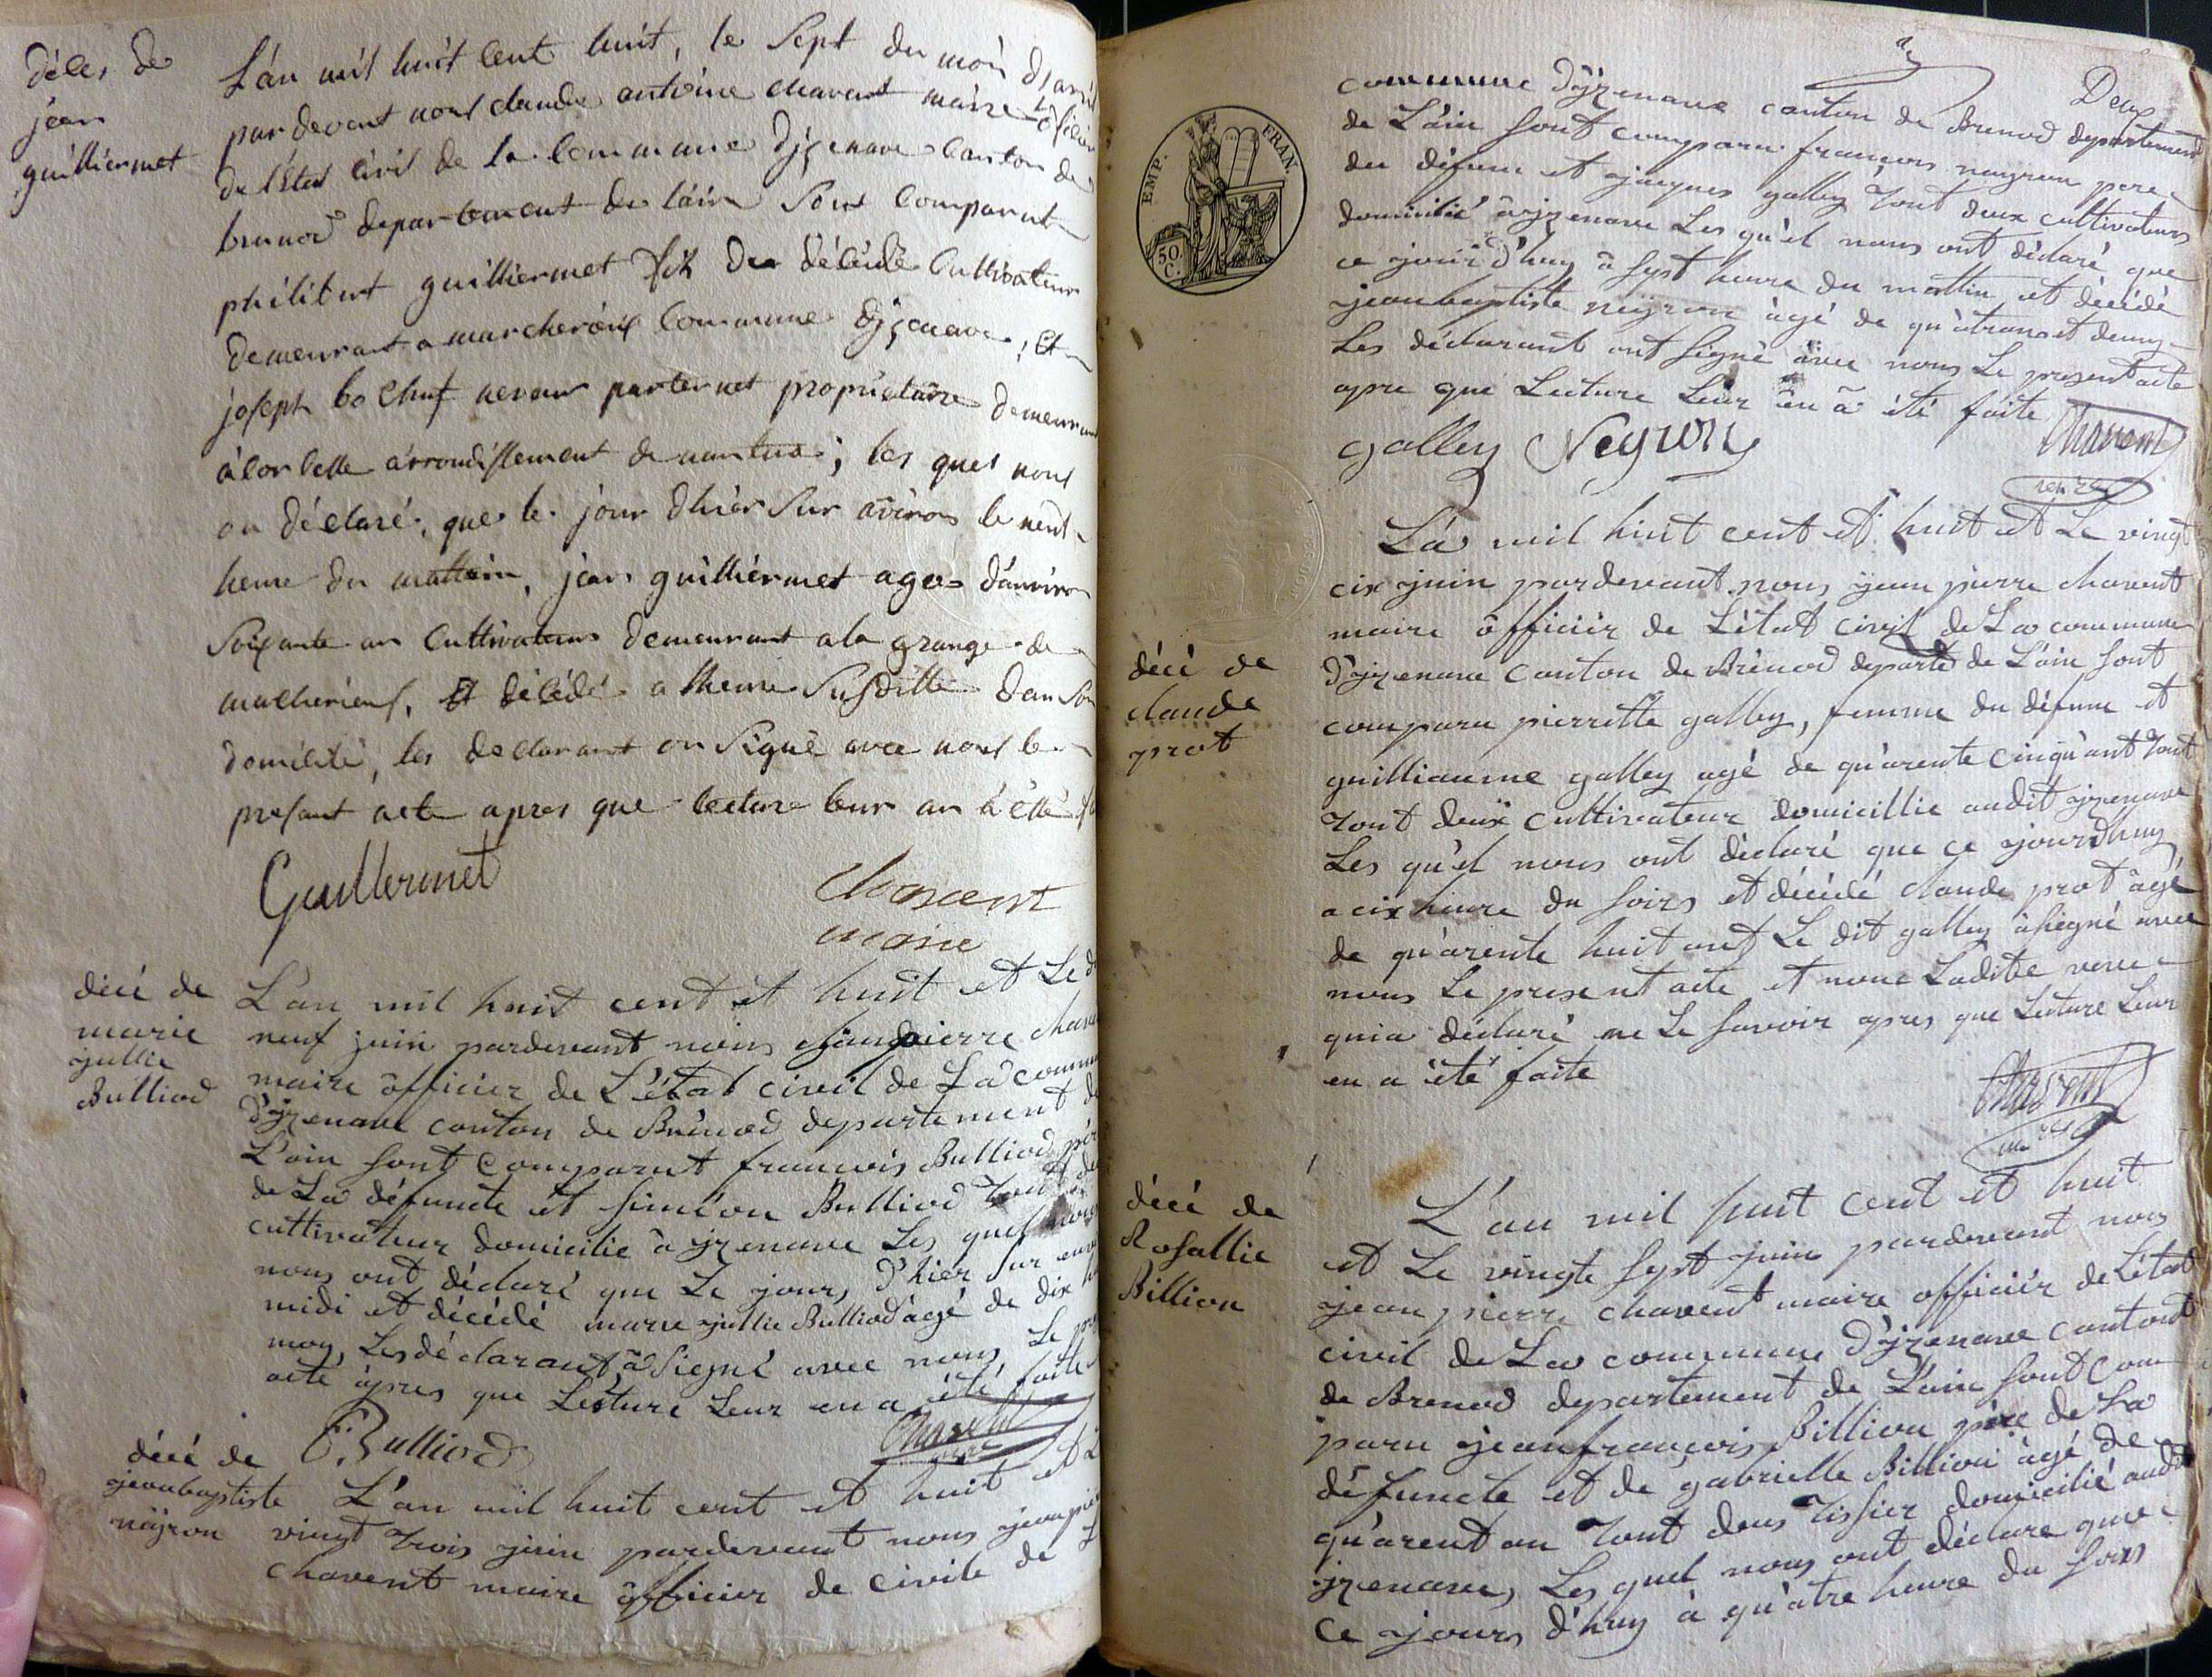 décés de
jean
guilliermet
L'an mil huit cent huit, le sept du mois d'avril
par devant nous claude antoine chavent maire officier
de l'état civil de la commune d'izenave canton de
brenod departement de l'ain sont comparut
philibert guilliermet fils du décédé cultivateur
demeurant a marcheroux commune d'izenave, et
joseph bochuf neveux parternet proprietaire demeurant
à corcelle arrondissement de nantua; les quel nous
on déclaré, que le jour d'hier sur aviron le neut
heure du mattain, jean guilliermet age d'anviron
soixante an cultivateur demeurant a la grange de
macherieux, et décédé a lheure susditte dan son
domicilé, les declarant on signé avec nous le
presant acte apres que lecture leur an à été
Guillermet
Chavent
maire
décé de
marie
jullie
Bulliod
L'an mil huit cent et huit et Le dix
neuf juin pardevant nous jeanpierre chavent
maire officier de L'état civil de La commune
d'izenave canton de Brenod departement de
L'ain sont comparut francois Bulliod père
de La défuncte et siméon Bulliod tout deux
cultivateur domicilie à izenave Les quel nous
nous ont déclaré que Le jours d'hier sur
midi et décédé marie jullie Bulliod âgé de dix
moy, Les déclarant à siegné avec nous, Le
acte àpres que Lecture Leur en a été faite
F. Bulliod
Chavent
maire
décé de
jeanbaptiste
neyron
L'an mil huit cent et huit et Le
vingt trois juin pardevant nous jeanpierre
chavent maire officier de civile de
Deux
EMP. FRAN.
50.
C.
commune d'izenave canton de Brenod departement
de L'ain sont comparu francois neyron pere
du défunc et jacques galley tout deux cultivateurs
domicilié à izenave Les qu'el nous ont déclaré que
ce jour d'huy à sept heure du mattin et décédé
jeanbaptiste neyron âgé de qu'atran et demy
Les déclarant ont signé avec nous Le present acte
apre que Lecture Leur en à été faite
galley Neyron
Chavent
maire
décé de
claude
prot
L'a mil huit cent et huit et Le vingt
cix juin pardevant nous jean pierre chavent
maire officier de L'état civil de La commune
d'izenave canton de Brénod departed de L'ain sont
comparu pierrette galley, femme du défunc et
guilliaume galley agé de qu'arente cinqu'ant tout
tout deux cultivateur domicillie audit izenave
Les qu'el nous ont déclaré que ce jourd'huy
a cix heure du soirs et décédé claude prot âgé
de qu'arente huit ant Le dit galley à siegné avec
nous Le present acte et nonc Laditte veuve
quia déclaré ne Le savoir apres que Lecture Leur
en a été faite
Chavent
maire
décé de
Rosallie
Billion
L'an mil huit cent et huit
et Le vingte sept juin pardevant nous
jean pierre chavent maire officier de L'état
civil de La commune d'izenave cantont
de Brenod departement de L'ain sont com
paru jeanfrançois Billion père de La
défuncte et de gabrielle Billion âgé de
qu'arent an tout deus tissier domicilié audit
izenave, Les quel nous ont déclare que
ce jours d'huy à qu'âtre heure du soirs